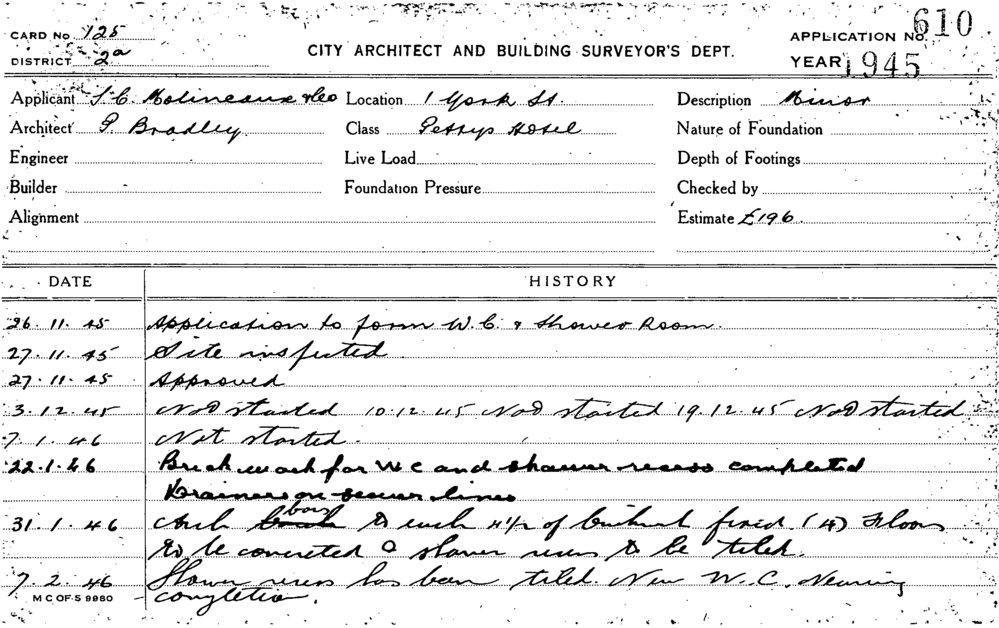 CARD No 125
DISTRICT 2a
CITY ARCHITECT AND BUILDING SURVEYOR'S DEPT.
APPLICATION No 610
YEAR 1945
Applicant J. C. Molineaux & Co Location 1 York St. Description Minor
Architect P. Bradley Class Pettys Hotel Nature of Foundation
Engineer Live Load Depth of Footings
Builder Foundation Pressure Checked by
Alignment Estimate £196
DATE HISTORY
26.11.45 Application to form W.C. & Shower Room.
27.11.45 Site inspected
27.11.45 Approved
3.12.45 Not started 10.12.45 Not started 19.12.45 Not started
7.1.46 Not started.
22.1.46 Brick work for WC and shower recess completed
Drainers on sewer lines
31.1.46 Arch bars to each 4½ of fixed. (4) Floors
to be concreted & shower recess to be tiled.
7.2.46 Shower recess has been tiled. New W.C. Nearing
completion.
M C OF S 9980